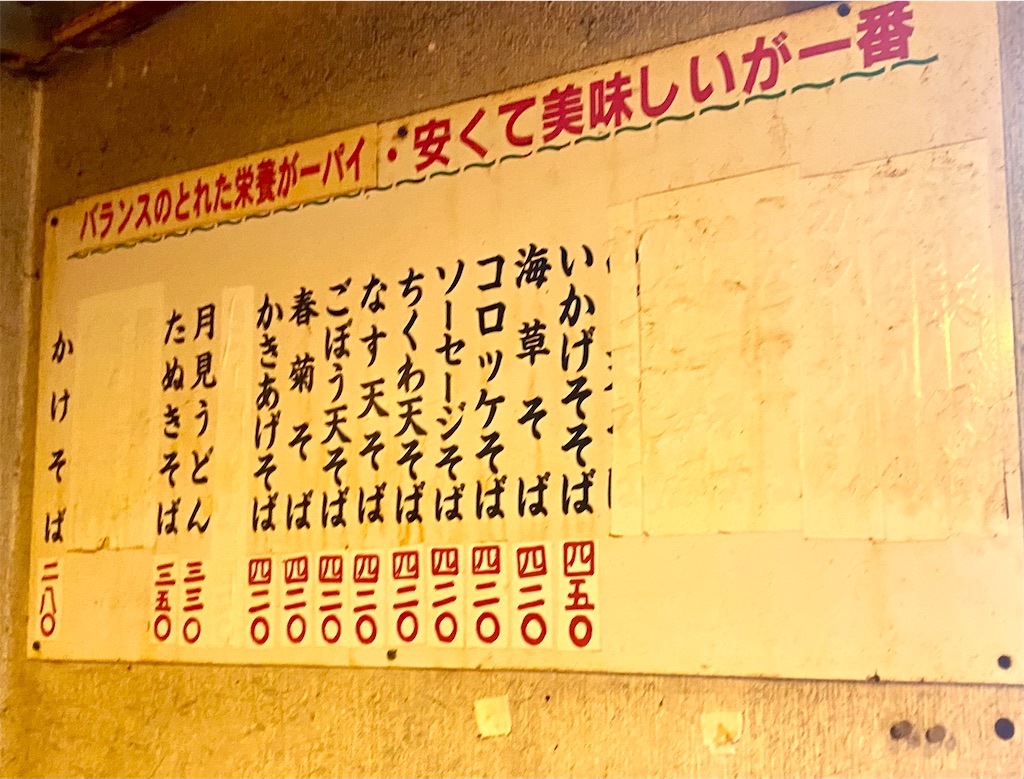 バランスのとれた栄養が一パイ・安くて美味しいが一番
いかげそそば 四五〇
海草そば 四二〇
コロッケそば 四二〇
ソーセージそば 四二〇
ちくわ天そば 四二〇
なす天そば 四二〇
ごぼう天そば 四二〇
春菊そば 四二〇
かきあげそば 四二〇
月見うどん 三三〇
たぬきそば 三五〇
かけそば 二八〇